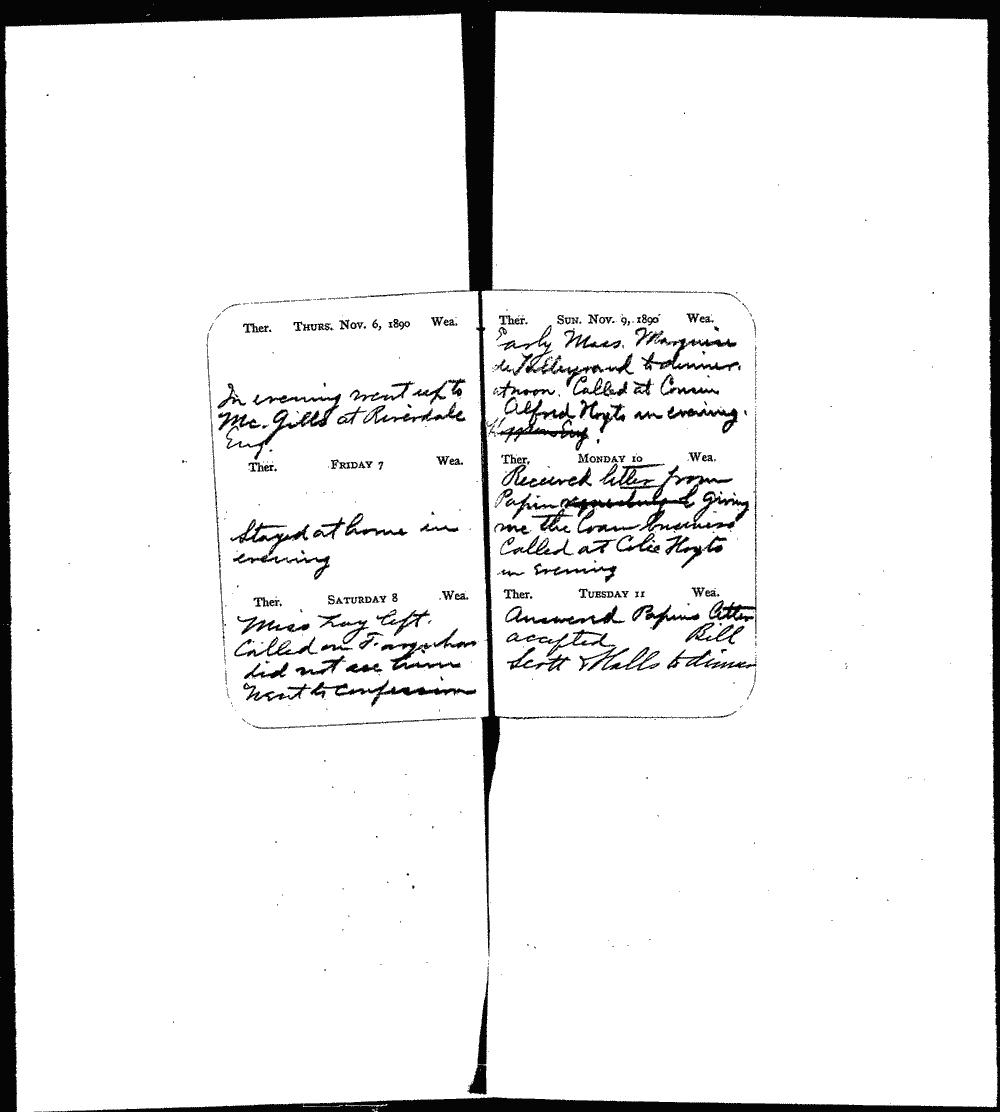 Ther. THURS. NOV. 6, 1890 Wea.
In evening went up to
Mc. Gills at Riverdale
Eng.
Ther. FRIDAY 7 Wea.
Stayed at home in
evening
Ther. SATURDAY 8 Wea.
Miss Lay left.
Called on Farquhar
did not see him
Went to confession
Ther. SUN. NOV. 9, 1890 Wea.
Early Mass. Marquise
de Talleyrand to dinner.
at noon. Called at Cousin
Alfred Hoyts in evening.
Ther. MONDAY 10 Wea.
Received letter from
Papin giving
me the Loan business
Called at Colie Hoyts
in evening
Ther. TUESDAY 11 Wea.
Answered Papins letter
accepted Bill
Scott & Halls to dinner